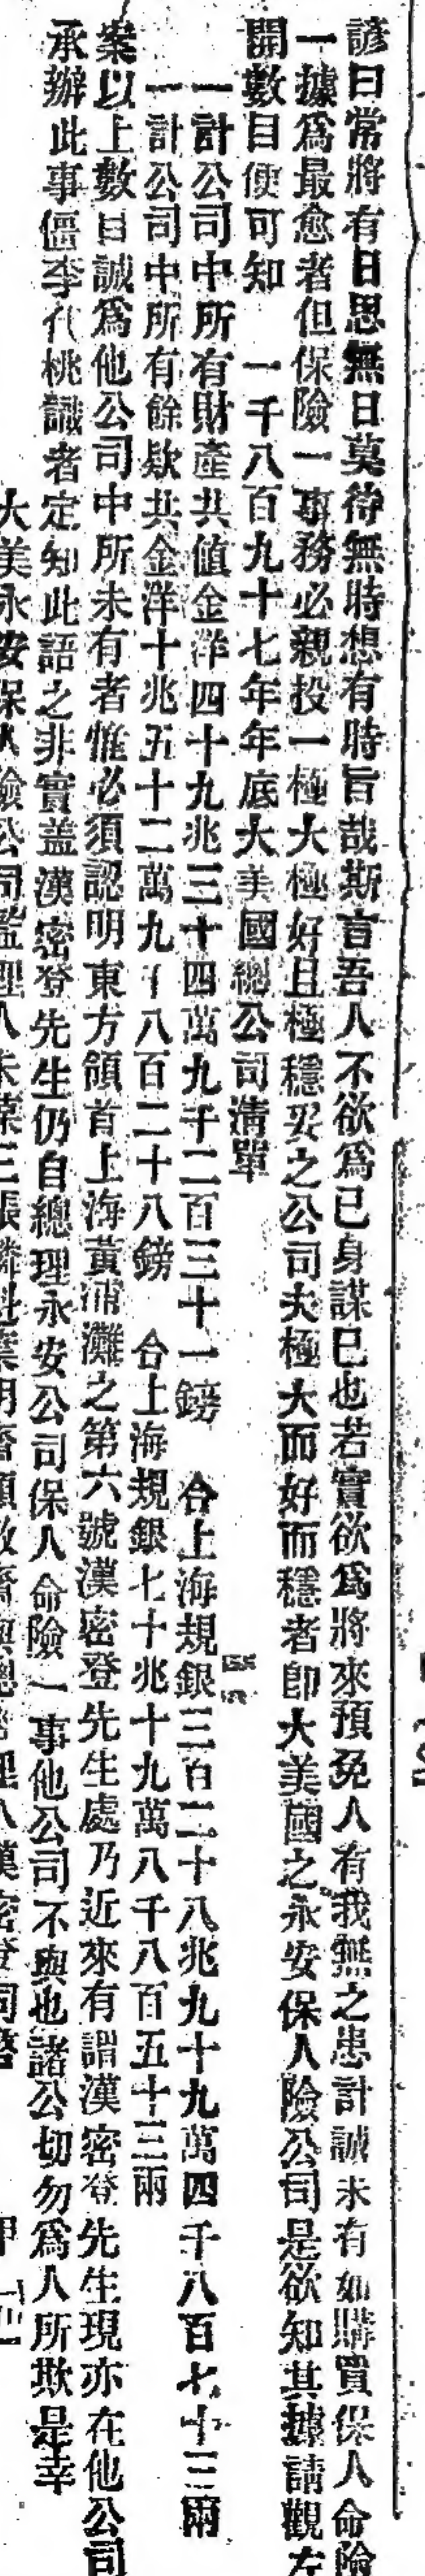 諺曰常將有日思無日莫待無時想有時旨哉斯言吾人不欲爲己身謀已也若實欲爲將來預免人有我無之患計誠未有如購買保人命險
一據爲最愈者但保險一事務必親投一極大極好且極穩妥之公司夫極大而好而穩者卽大美國之永安保人險公司是欲知其據請觀左
開數目便可知　一千八百九十七年年底大美國總公司淸單
一計公司中所有財產共値金洋四十九兆三十四萬九千二百三十一鎊　合上海規銀三百二十八兆九十九萬四千八百七十三兩
一計公司中所有餘欵共金洋十兆五十二萬九千八百二十八鎊　合上海規銀七十兆十九萬八千八百五十三兩
案以上數目誠爲他公司中所未有者惟必須認明東方領首上海黃浦灘之第六號漢密登先生處乃近來有謂漢密登先生現亦在他公司
承辦此事僵李代桃識者定知此語之非實盖漢密登先生仍自總理永安公司保人命險一事他公司不與也諸公切勿爲人所欺是幸
大美永安保人險公司監理人朱葆三張麟魁葉明齋顧敬齋與總經理人漢密登同啓